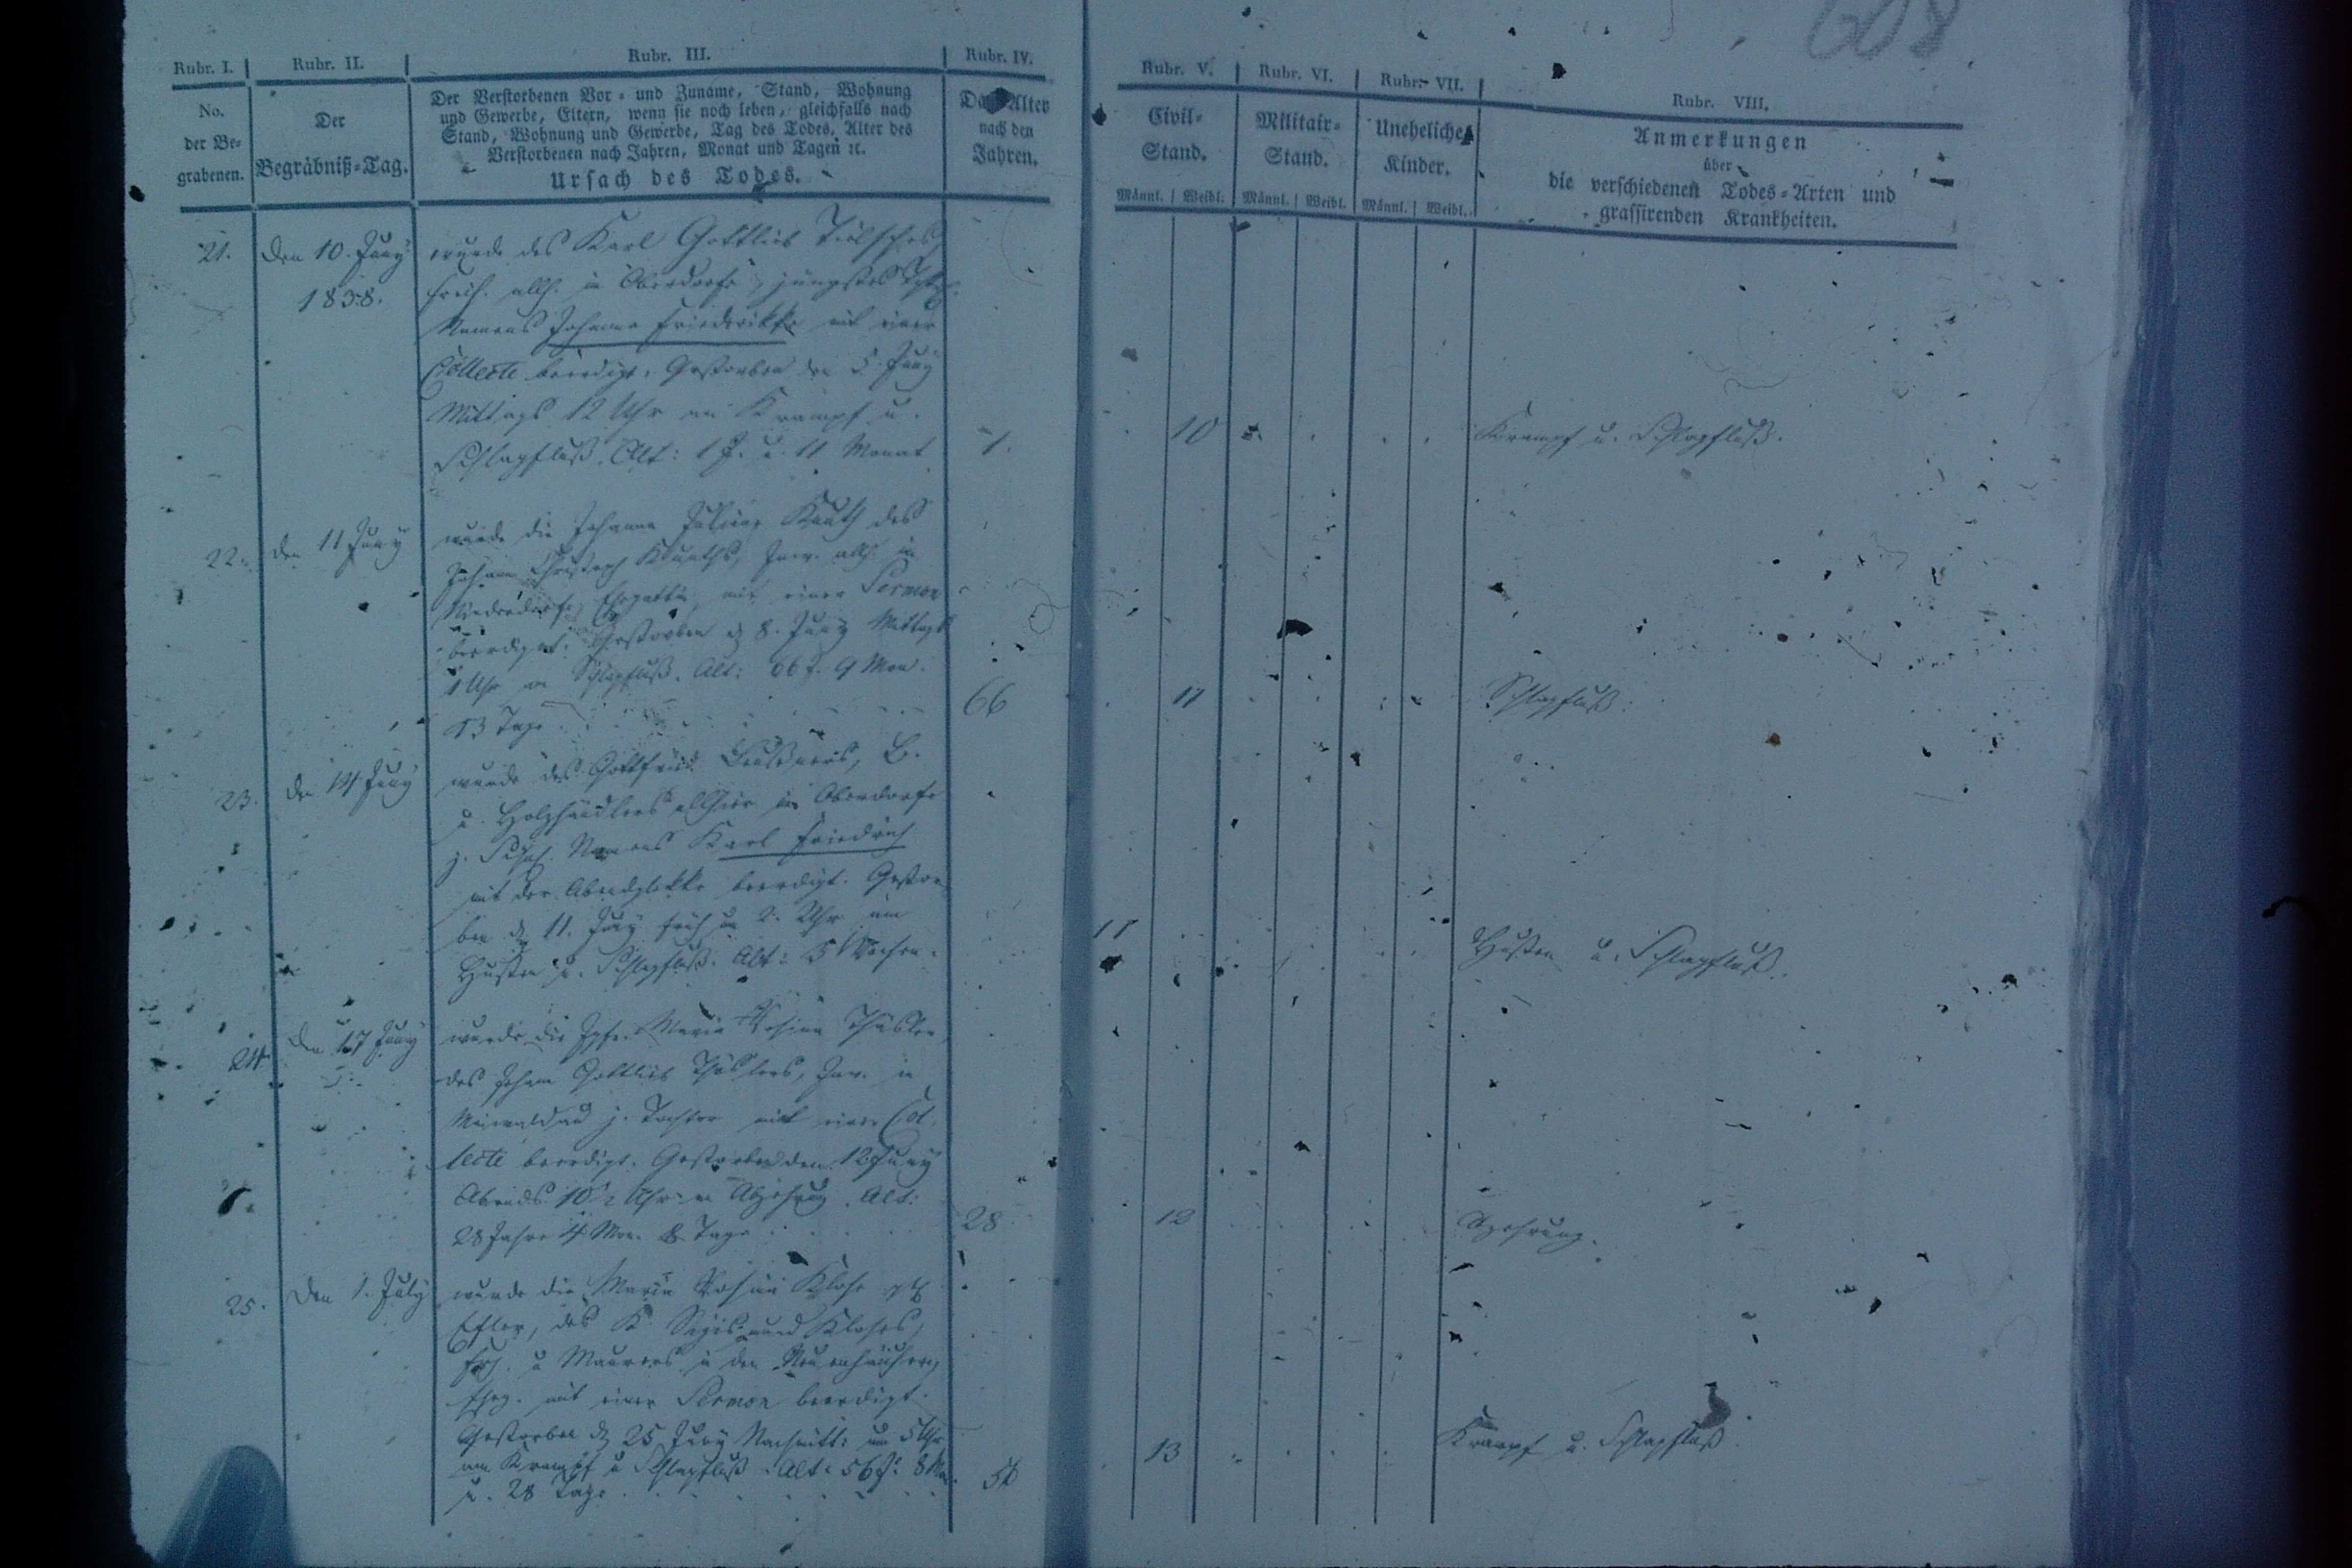 608
Rubr. I. Rubr. II. Rubr. III. Rubr. IV. Rubr. V. Rubr. VI. Rubr. VII. Rubr. VIII.
No.
der Be-
grabenen.
Der
Begräbniß-Tag.
Der Verstorbenen Vor- und Zuname, Stand, Wohnung
und Gewerbe, Eltern, wenn sie noch leben, gleichfalls nach
Stand, Wohnung und Gewerbe, Tag des Todes, Alter des
Verstorbenen nach Jahren, Monat und Tagen ꝛc.
Ursach des Todes.
Das Alter
nach den
Jahren.
Civil-
Stand.
Männl. Weibl.
Militair-
Stand.
Männl. Weibl.
Uneheliche
Kinder.
Männl. Weibl.
Anmerkungen
über
die verschiedenen Todes-Arten und
grassirenden Krankheiten.
21. den 10. Juny wurde des Karl Gottlieb
1838. allh. in Oberdorfe, jüngstes
Namens Johanne Friederikke mit einer
Collecte beerdigt. Gestorben den 5. Juny
Mittags 12 Uhr an Krampf u.
Schlagfluß. Alt: 1 J. u. 11 Monat 1. 10 Krampf u. Schlagfluß.
22. den 11 Juny wurde die Johanne Juliane Knuth des
Johann Christoph Knuths, Inw. allh. in
Niederdorfe, Ehegattin, mit einer Sermon
beerdiget. Gestorben d 8. Juny Mittags
1 Uhr an Schlagfluß. Alt: 66 J. 9 Mon.
13 Tage. 66 11 Schlagfluß.
23. den 14 Juny wurde des Gottfried B.
u. Holzhändlers allhier in Oberdorfe
j. Namens Karl Friedrich
mit der Abendglokke beerdigt. Gestor-
ben d 11. Juny früh um 2. Uhr am
Husten u. Schlagfluß. Alt: 5 Wochen. 11 Husten u. Schlagfluß.
24. den 17 Juny wurde die Igfr. Maria Rosina
des Johann Gottlieb Inw. in
Maiwaldau j. Tochter mit einer Col-
lecte beerdigt. Gestorben den 12 Juny
Abends 10 Uhr an Abzehrung. Alt:
28 Jahre 4 Mon. 8 Tage. 28. 12 Abzehrung.
25. den 1. July wurde die Maria Rosina Klose
des K. Sigismund Kloses,
u Maurers in den Neuenhäusern,
Eheg. mit einer Sermon beerdigt.
Gestorben d 25 Juny Nachmitt: um 5 Uhr
am Krampf u Schlagfluß. Alt: 56 J. 8 Mon. 56 13 Krampf u. Schlagfluß.
u. 28 Tage.